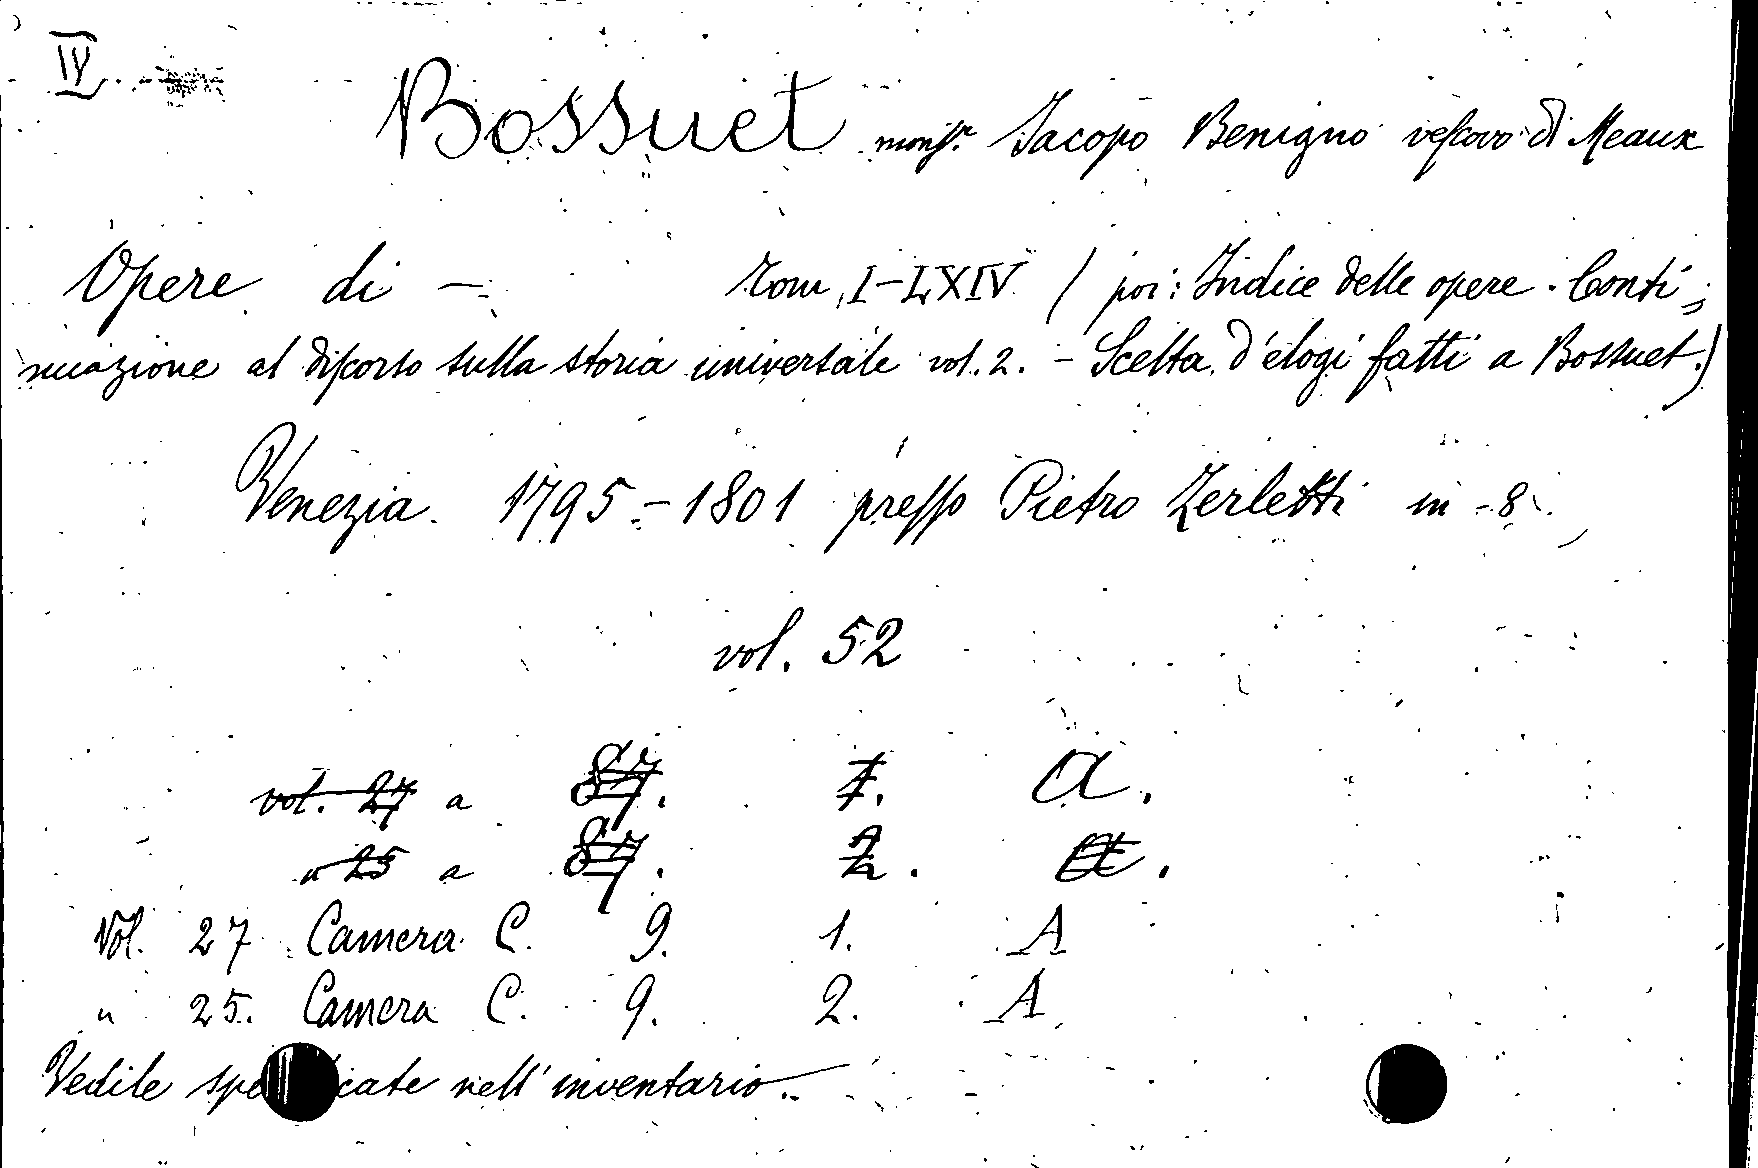 IV.
Bossuet monsr. Jacopo Benigno vescovo di Meaux
Opere di — Tom. I-LXIV ( poi: Indice delle opere. Conti=
nuazione al discorso sulla storia universale vol. 2. - Scelta d'elogi fatti a Bossuet.)
Venezia. 1795.-1801 presso Pietro Zerletti in-8.
vol. 52
vol. 27 a 87. 1. A.
" 25 a 87. 2. A.
Vol. 27 Camera C. 9. 1. A
" 25. Camera C. 9. 2. A
Vedile nell'inventario.